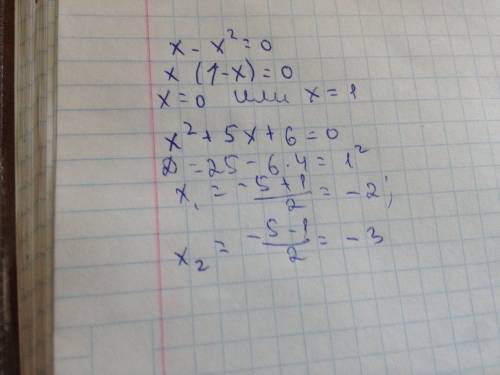 x - x² = 0
x (1-x) = 0
x = 0 или x = 1
x² + 5x + 6 = 0
D = 25 - 6·4 = 1²
x₁ = (-5+1)/2 = -2;
x₂ = (-5-1)/2 = -3